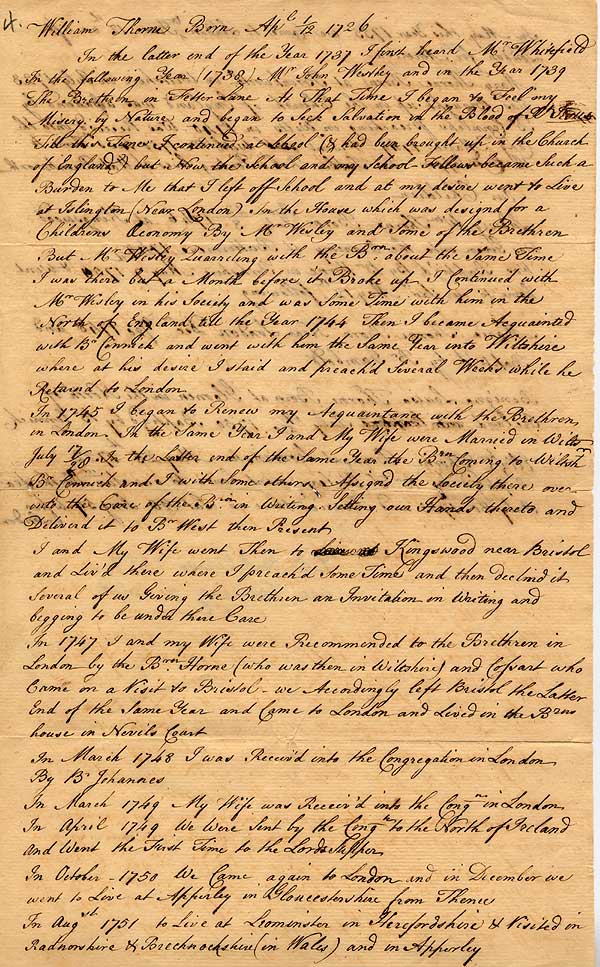 4.
William Thorne Born. Apl 1/12 1726
In the latter end of the Year 1737 I first heard Mr Whitefield
In the following Year (1738) Mr John Westley and in the Year 1739
The Brethren in Fetter Lane At That Time I began to Feel my
Misery by Nature and began to Seek Salvation in the Blood of
Till this Time I continued at School (& had been brought up in the Church
of England) but Now the School and my School-Fellows became Such a
Burden to Me that I left off School and at my desire went to Live
at Islington (Near London) In the House which was designd for a
Childrens Œconomy By Mr Wesley and Some of the Brethren
But Mr Wesley Quarreling with the Brn about the Same Time
I was there but a Month before it Broke up I Continued with
Mr Wesley in his Society and was Some Time with him in the
North of England till the Year 1744 Then I became Acquainted
with Br Cennick and went with him the Same Year into Wiltshire
where at his desire I staid and preach'd Several Weeks while he
Returnd to London
In 1745 I began to Renew my Acquaintance with the Brethren
in London. In the Same Year I and My Wife were Married in Wilts
July 17/28 In the Latter end of the Same Year the Brn Coming to Wiltshr
Br Cennick and I with some others Assignd the Society there over
into the Care of the Brn in Writing Setting our Hands thereto and
Deliverd it to Br West then Present
I and My Wife went Then to Kingswood near Bristol
and Liv'd there where I preach'd Some Time and then declind it
Several of us Giving the Brethren an Invitation in Writing and
begging to be under there Care
In 1747 I and my Wife were Recommended to the Brethren in
London by the Brn Horne (who was then in Wiltshire) and Cossart who
Came on a Visit to Bristol - we Accordingly left Bristol the Latter
End of the Same Year and Came to London and Lived in the Brns
house in Nevils Court
In March 1748 I was Receiv'd into the Congregation in London
By Br Johannes
In March 1749 My Wife was Receiv'd into the Congn in London
In April 1749 We Were Sent by the Congn to the North of Ireland
and Went the First Time to the Lords Supper
In October - 1750 We Came again to London and in December we
went to Live at Apperley in Gloucestershire from Thence
In Augst 1751 to Live at Leominster in Herefordshire & Visited in
Radnorshire & Brechnockshire (in Wales) and in Apperley